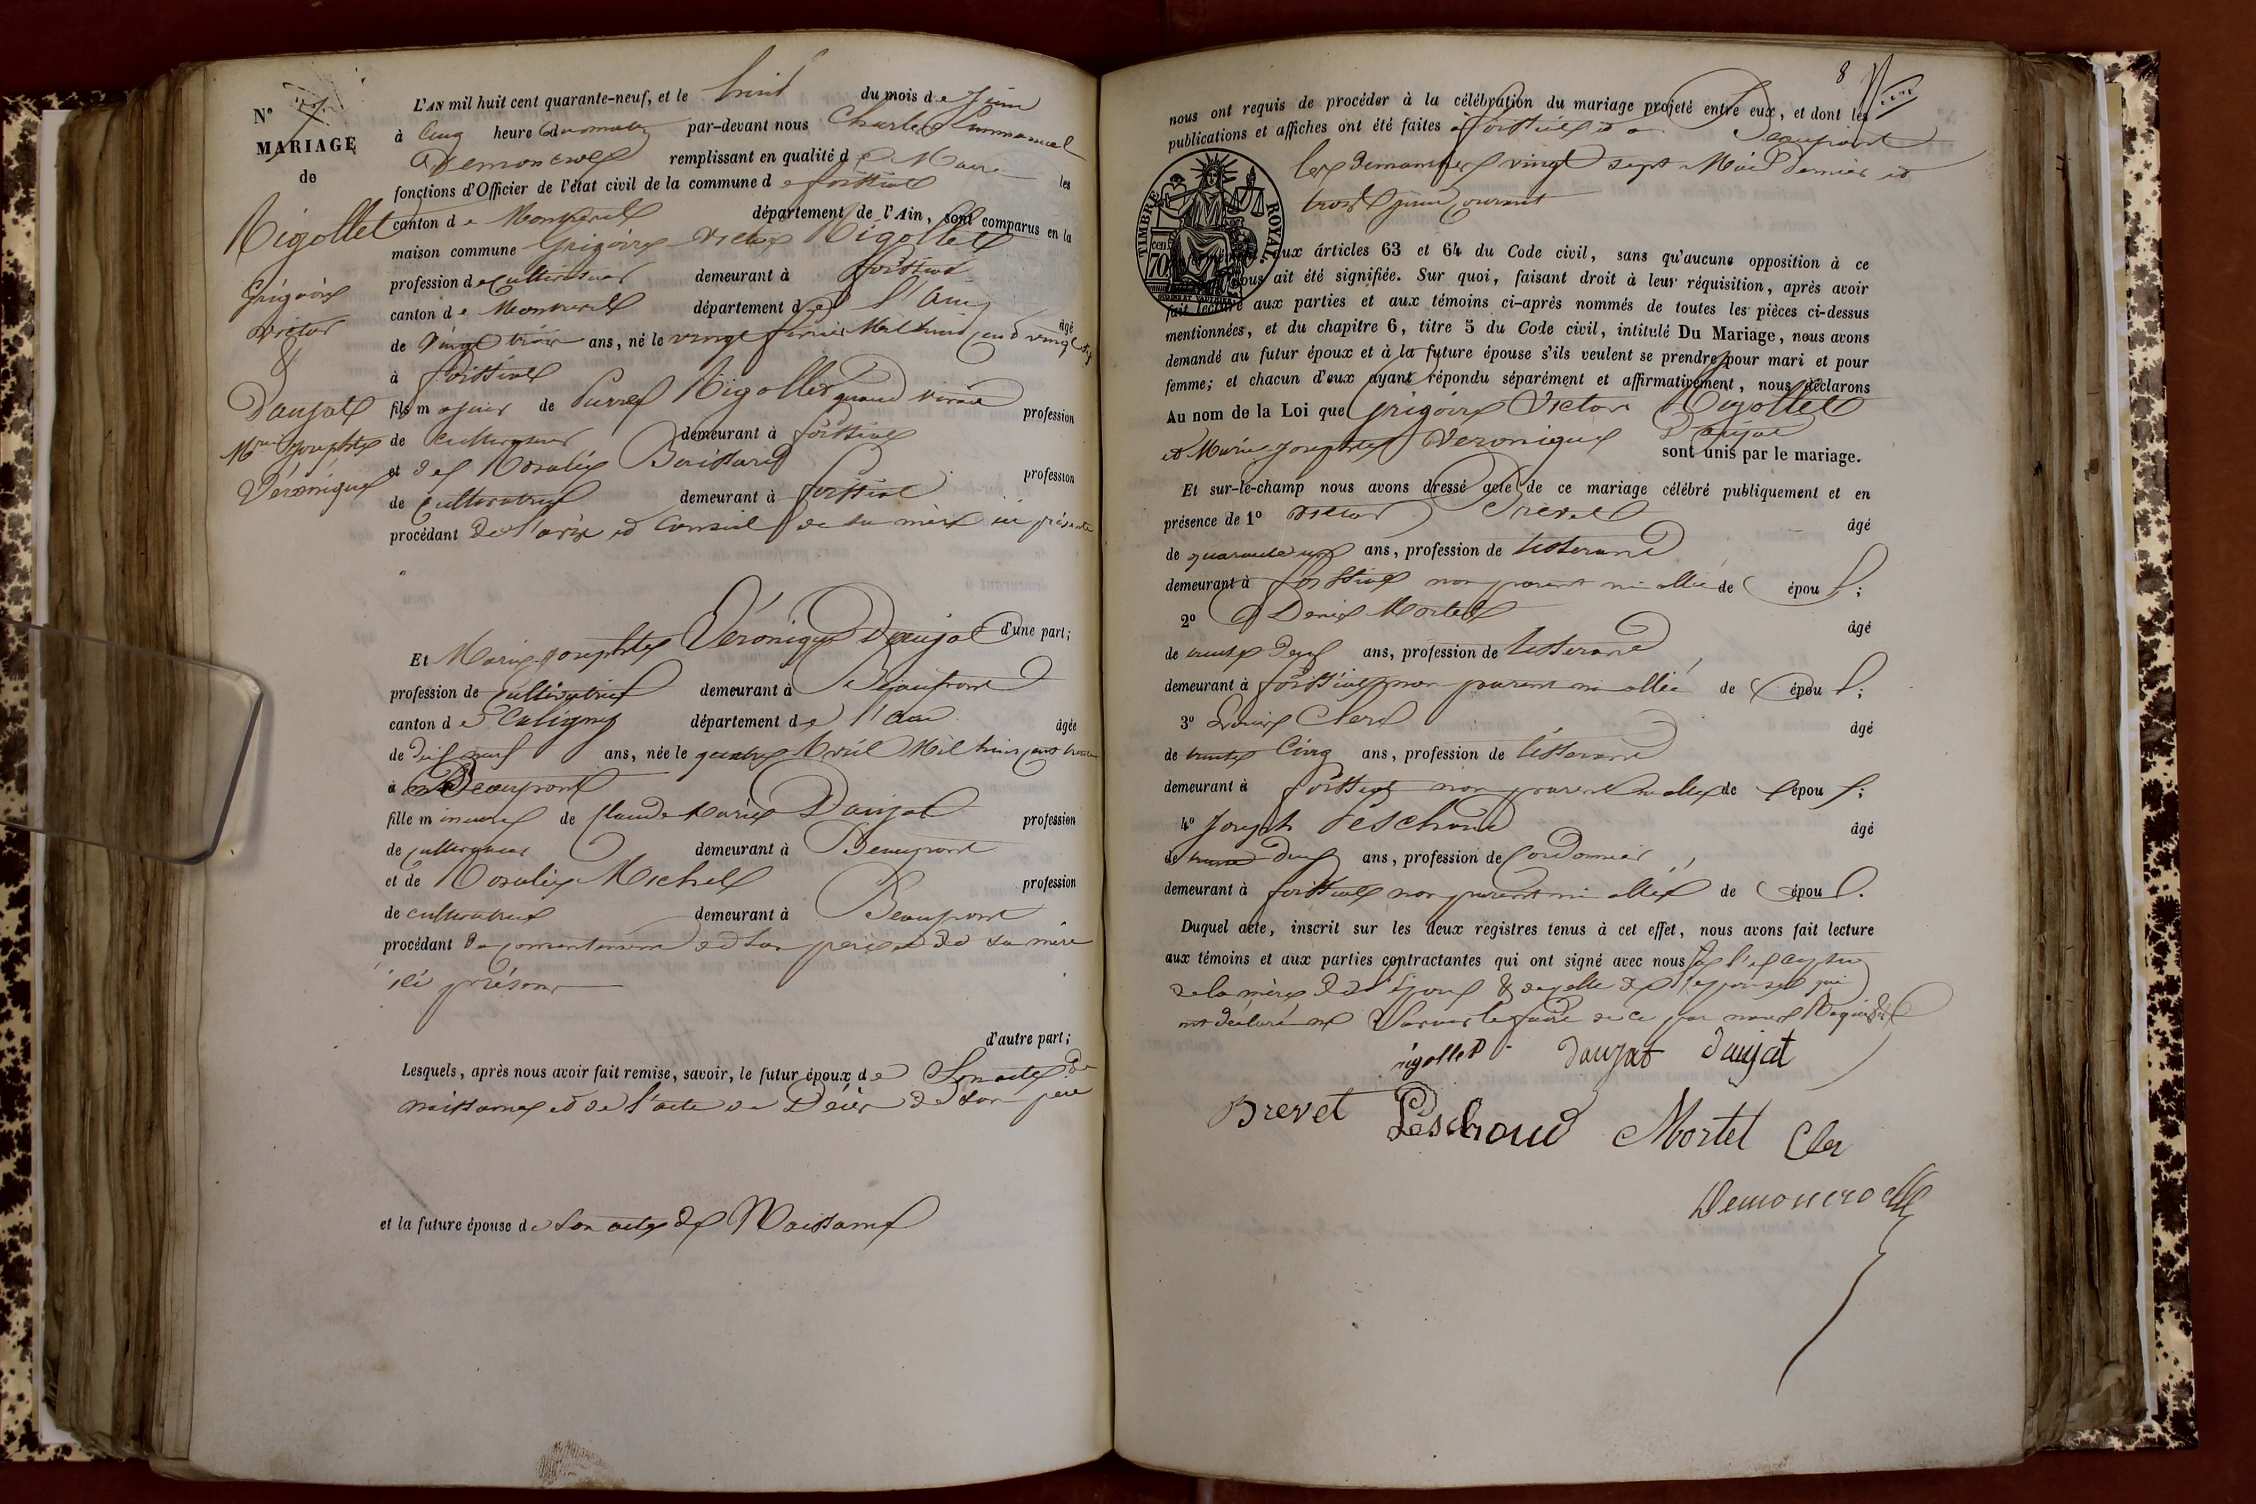 N° 7
MARIAGE
de
Rigollet
Grégoire
victor
&
Daujat
Mie Josephte
Véronique
L'AN mil huit cent quarante-neuf, et le huit du mois de Juin
à Cinq heure du matin par-devant nous Charles Emmanuel
Demoncroel remplissant en qualité de Maire les
fonctions d'Officier de l'état civil de la commune de foissiat
canton de Montrevel département de l'Ain, sont comparus en la
maison commune Grégoire Victor Rigollet
profession de Cultivateur demeurant à foissiat
canton de Montrevel département de l'Ain âgé
de Vingt trois ans, né le vingt février Mil huit cent vingt six
à foissiat
fils majeur de Pierre Rigollet quand vivait profession
de cultivateur demeurant à foissiat
et de Rosalie Boissard profession
de cultivatrice demeurant à foissiat
procédant de l'avis et Conseil de sa mère ici présente
d'une part;
Et Marie Josephte Véronique Daujat
profession de cultivatrice demeurant à Beaupont
canton de Coligny département de l'Ain âgée
de dix neuf ans, née le quatre Avril Mil huit cent trente
à Beaupont
fille mineure de Claude Marie Daujat profession
de cultivateur demeurant à Beaupont
et de Rosalie Michel profession
de cultivatrice demeurant à Beaupont
procédant du consentement de son père et de sa mère
ici présent
d'autre part;
Lesquels, après nous avoir fait remise, savoir, le futur époux de Son acte de
naissance et de l'acte de Décès de son père
et la future épouse de son acte de Naissance
8
nous ont requis de procéder à la célébration du mariage projeté entre eux, et dont les
publications et affiches ont été faites à foissiat et à Beaupont
les dimanches vingt sept Mai dernier et
trois juin courant
TIMBRE ROYAL
70 cen.
aux articles 63 et 64 du Code civil, sans qu'aucune opposition à ce
nous ait été signifiée. Sur quoi, faisant droit à leur réquisition, après avoir
fait lecture aux parties et aux témoins ci-après nommés de toutes les pièces ci-dessus
mentionnées, et du chapitre 6, titre 5 du Code civil, intitulé Du Mariage, nous avons
demandé au futur époux et à la future épouse s'ils veulent se prendre pour mari et pour
femme; et chacun d'eux ayant répondu séparément et affirmativement, nous déclarons
Au nom de la Loi que Grégoire Victor Rigollet
et Marie Josephte Véronique Daujat
sont unis par le mariage.
Et sur-le-champ nous avons dressé acte de ce mariage célébré publiquement et en
présence de 1° Victor Brevet âgé
de quarante un ans, profession de tisserand
demeurant à foissiat non parent ni allié de épou ;
2° Denis Mortel âgé
de trente deux ans, profession de tisserand
demeurant à foissiat non parent ni allié de épou ;
3° Louis Clerc âgé
de trente Cinq ans, profession de tisserand
demeurant à foissiat non parent ni allié de épou ;
4° Joseph Peschoud âgé
de trente deux ans, profession de Cordonnier
demeurant à foissiat non parent ni allié de épou .
Duquel acte, inscrit sur les deux registres tenus à cet effet, nous avons fait lecture
aux témoins et aux parties contractantes qui ont signé avec nous à l'exception
de la mère de l'époux & de celle de l'épouse qui
ont déclaré ne Savoir le faire de ce par nous Requis
rigollet daujat daujat
Brevet Peschoud Mortel Cler
Demoncroel